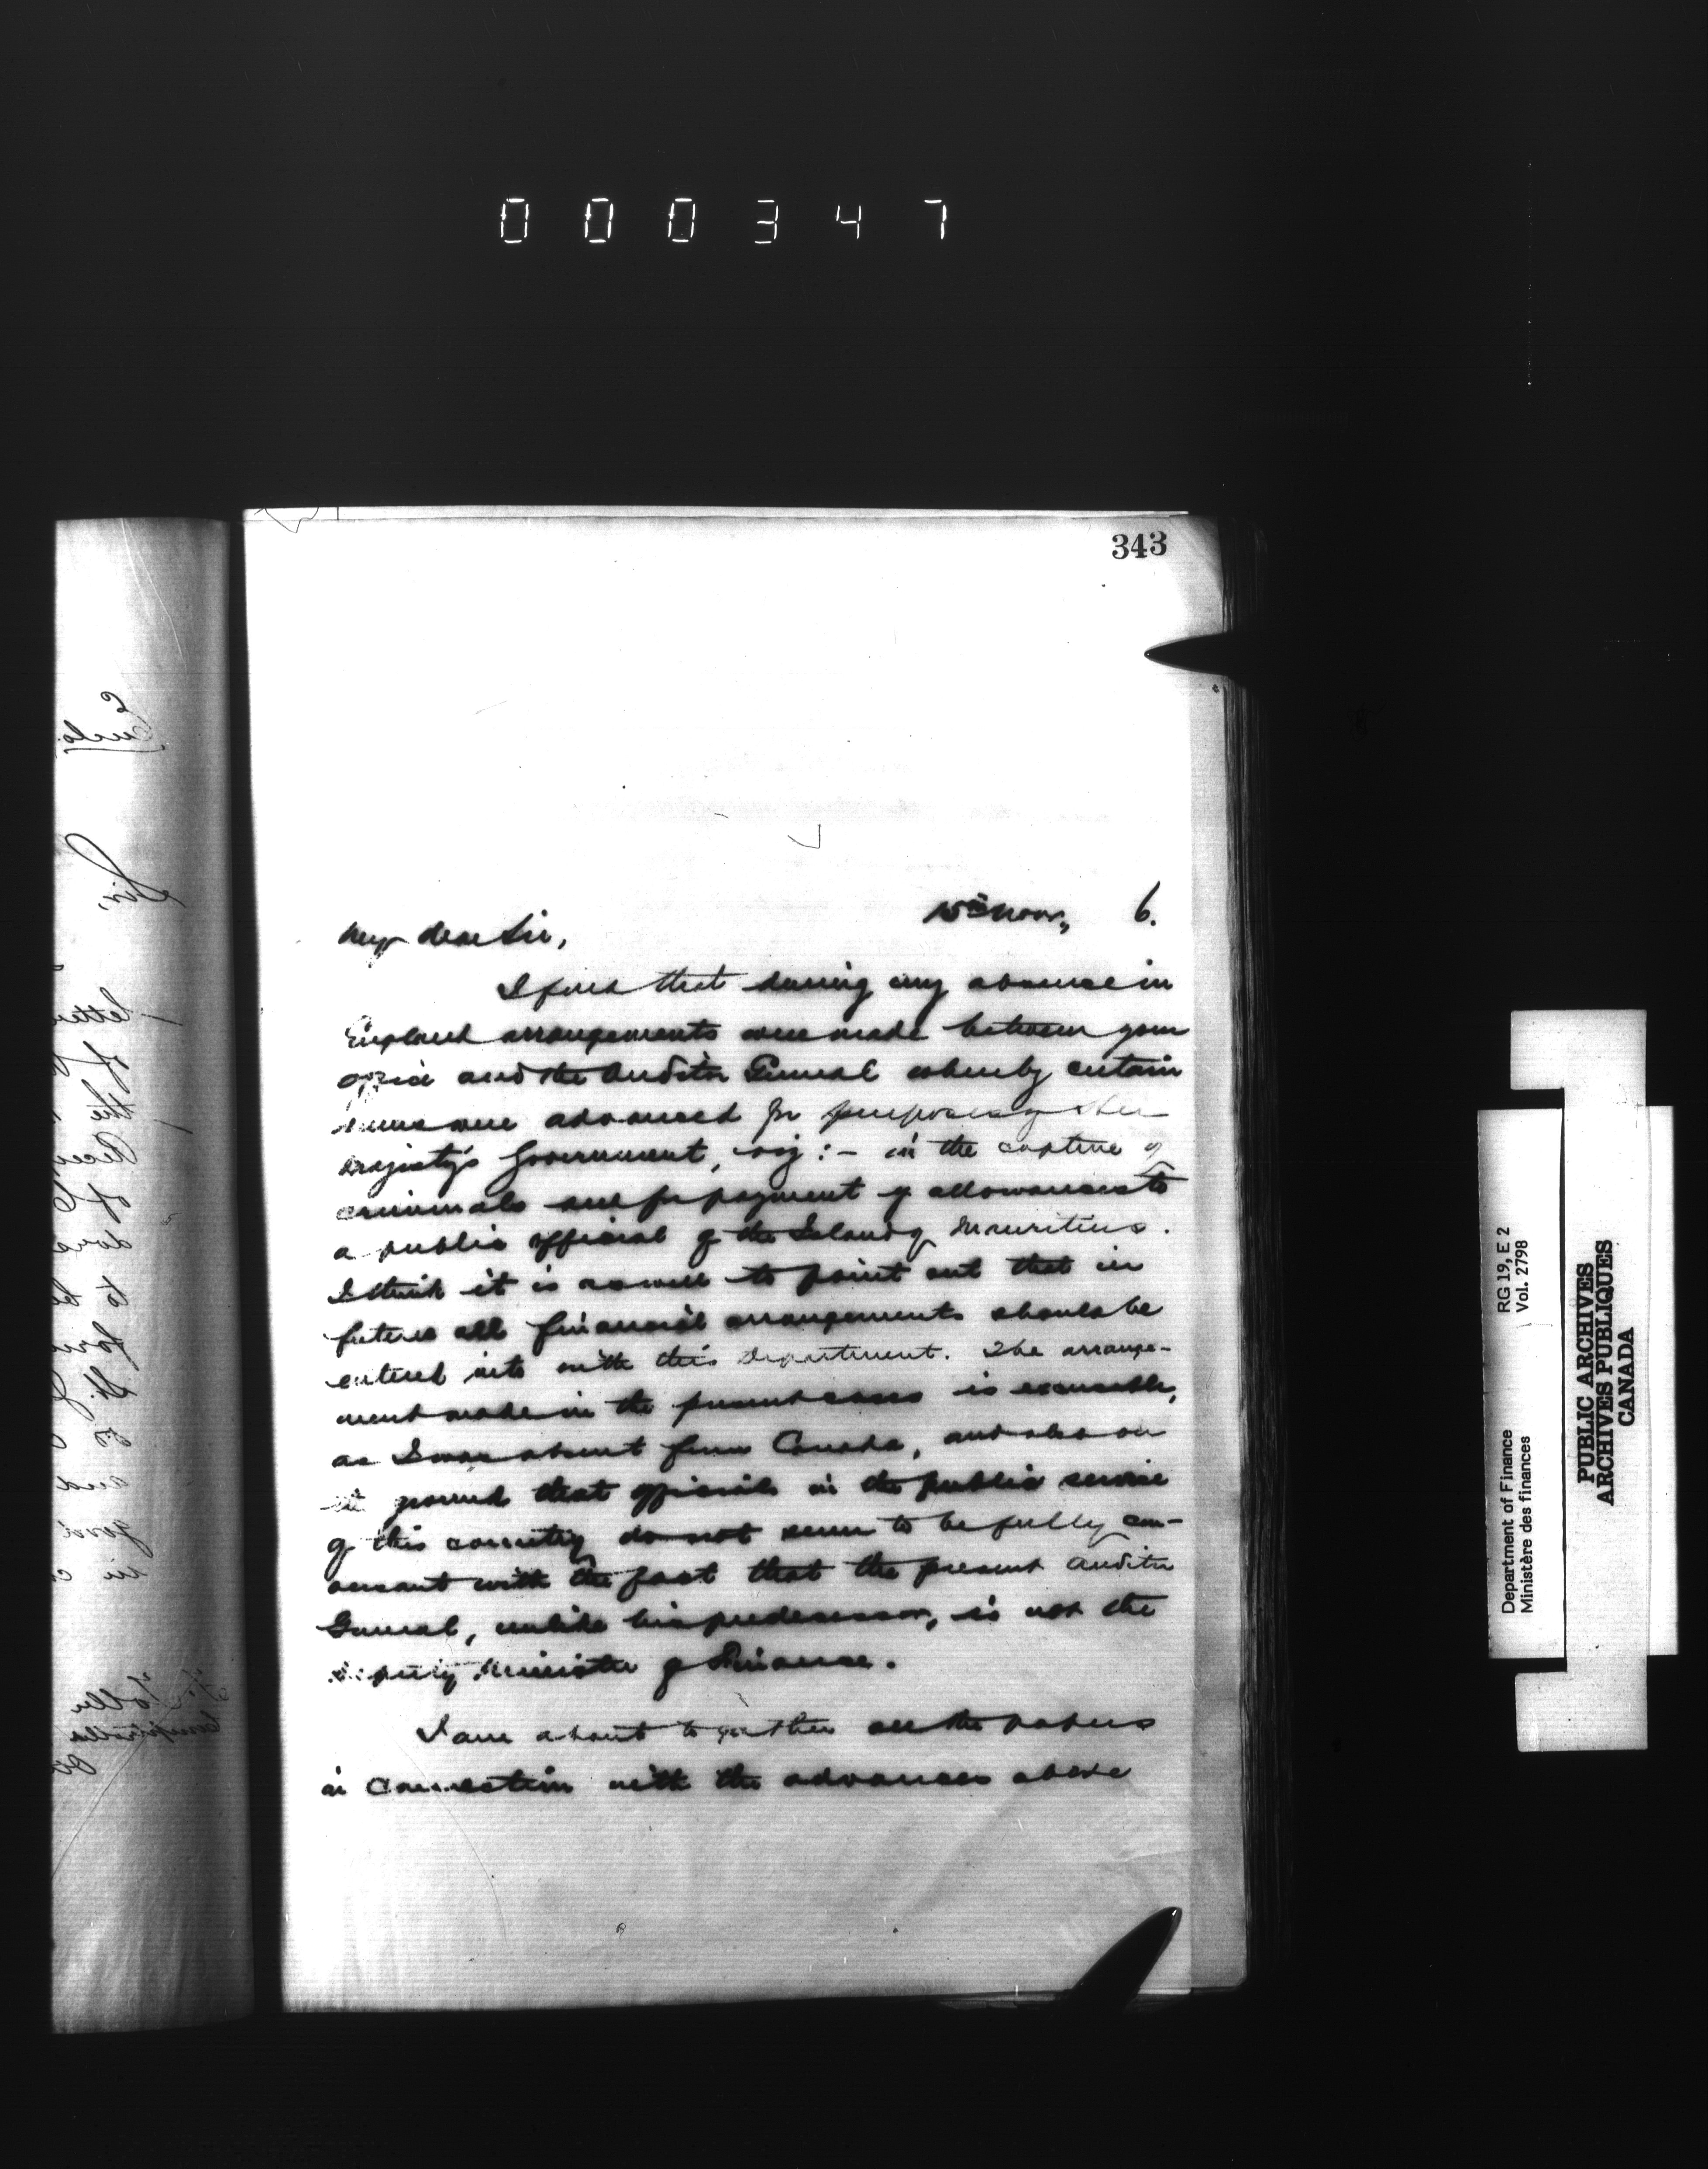 000347
343
15th Novr, 6.
My dear Sir,
I find that during my absence in
England arrangements were made between your
office and the Auditor General whereby certain
sums were advanced for purposes of Her
Majesty's Government, viz:- in the capture of
criminals and for payment of allowances to
a public official of the Island of Mauritius.
I think it is as well to point out that in
future all financial arrangements should be
entered into with this Department. The arrange-
ment made in the present cases is excusable,
as I was absent from Canada, and also on
the ground that officials in the public service
of this country do not seem to be fully con-
versant with the fact that the present Auditor
General, unlike his predecessor, is not the
Deputy Minister of Finance.
I am about to gather all the papers
in connection with the advances above
Department of Finance RG 19, E 2
Ministère des finances Vol. 2798
PUBLIC ARCHIVES
ARCHIVES PUBLIQUES
CANADA
Sir,
letter
of the